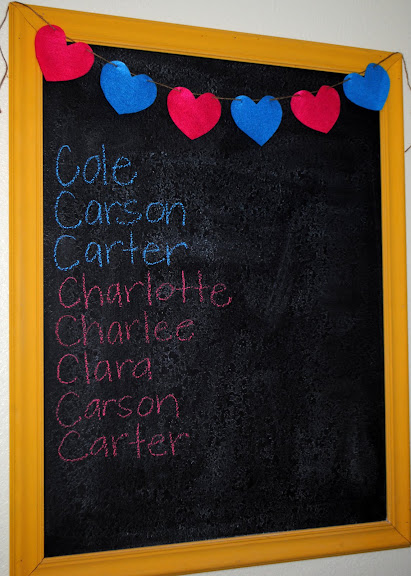 Cole
Carson
Carter
Charlotte
Charlee
Clara
Carson
Carter